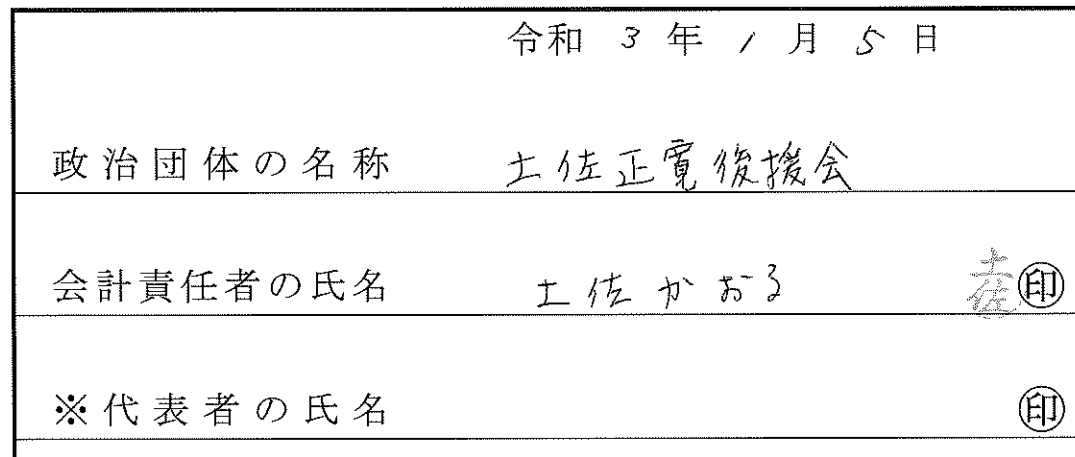 令和 3 年 1 月 5 日
政治団体の名称 土佐正寛後援会
会計責任者の氏名 土佐かおる 土佐 ㊞
※代表者の氏名 ㊞